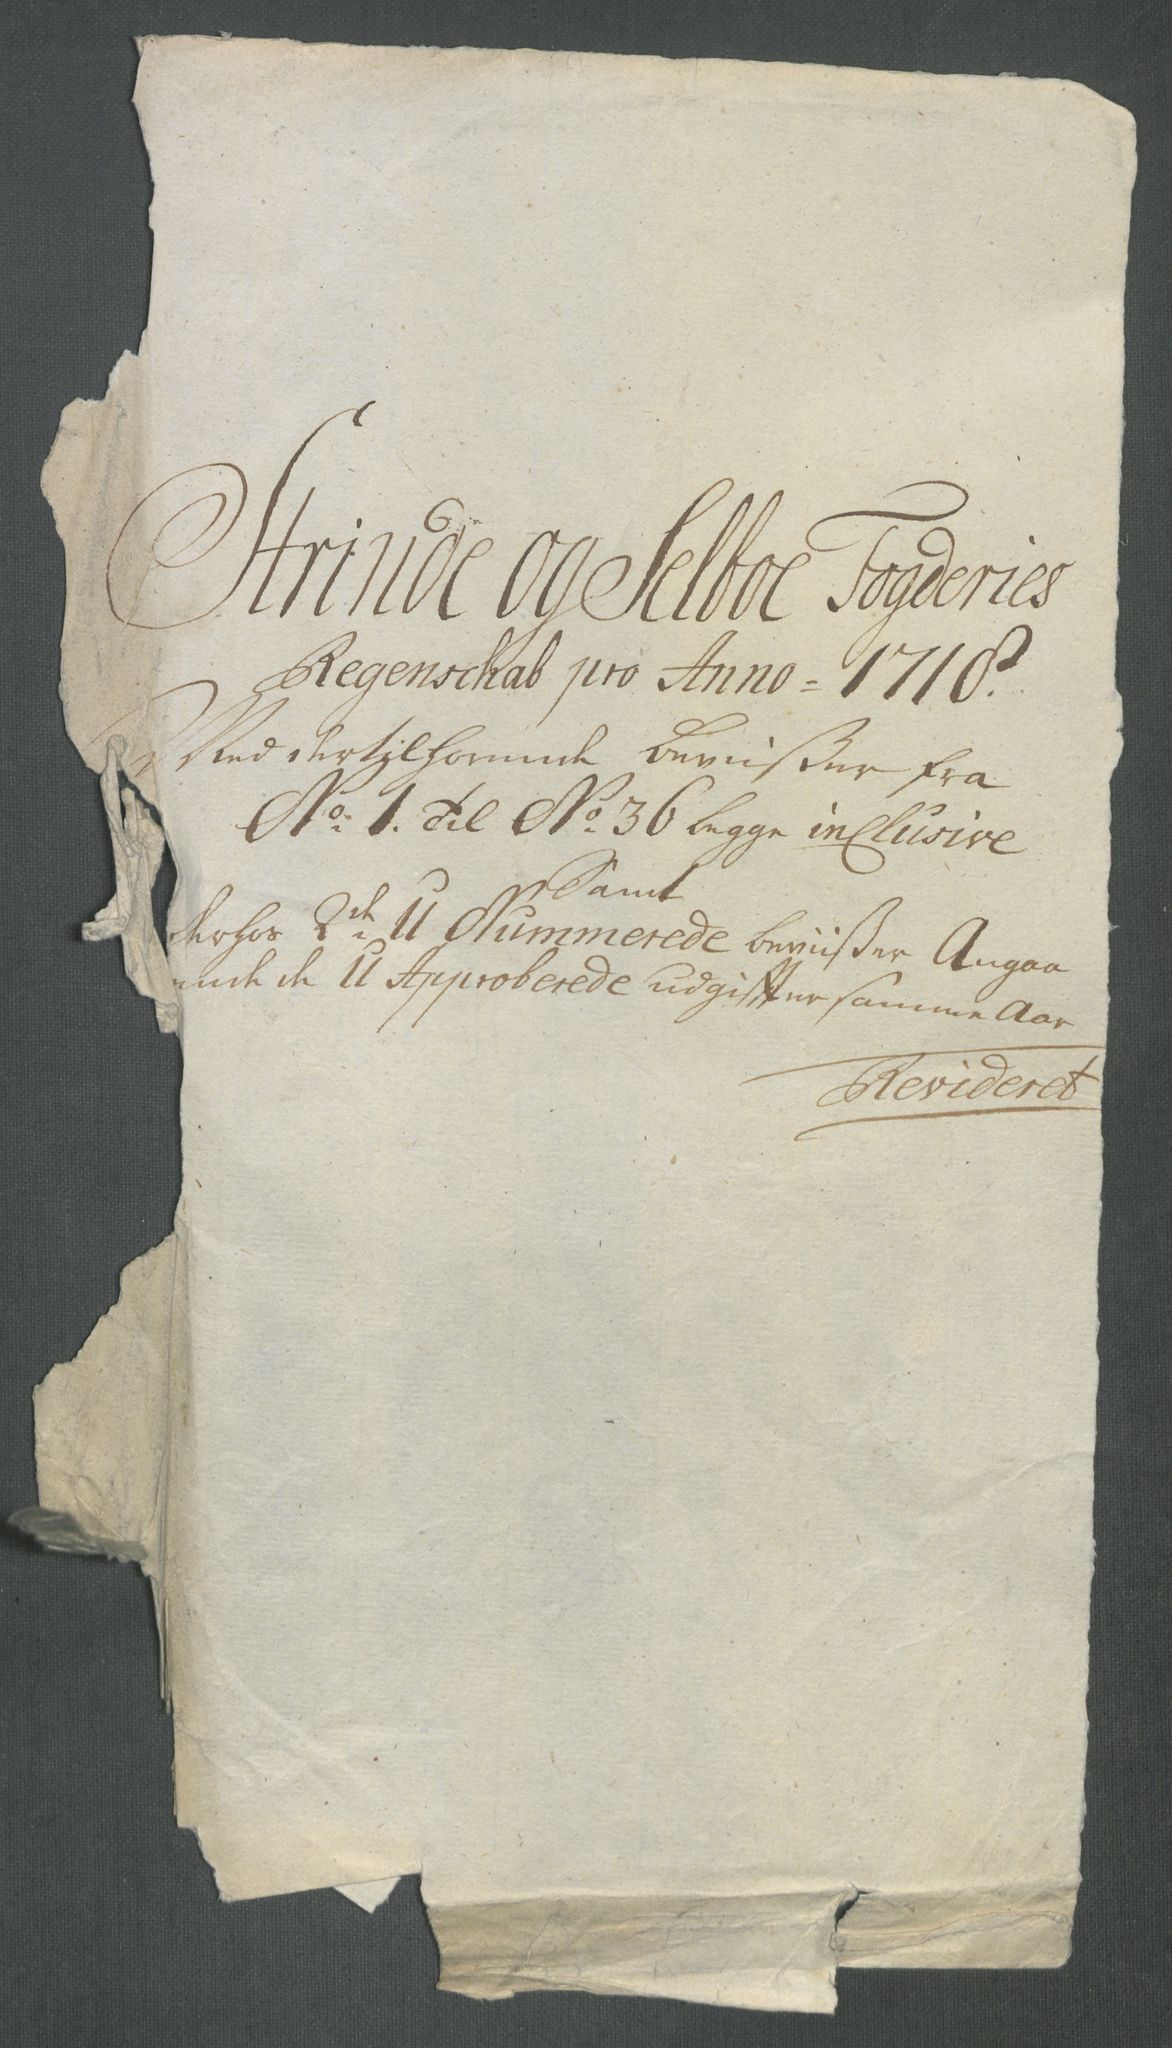 Strinde og Selboe Fogderies
Regenschab pro Anno = 1710?
Med dertilhörende beviißer fra
No: 1. til No: 36 begge inclusive
Samt
derhos 2de U Nummerede beviißer Angaa
ende de U Approberede udgiffter samme Aar
Revideret